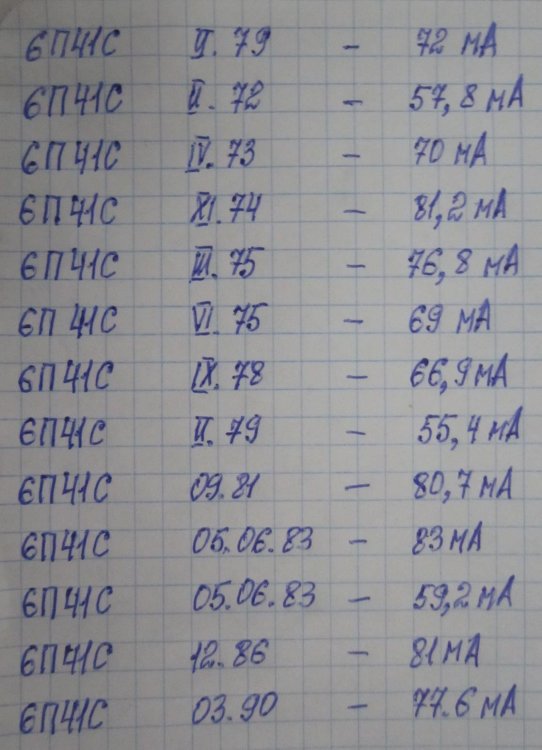 6П41С V. 79 – 72 мА
6П41С II. 72 – 57,8 мА
6П41С IV. 73 – 70 мА
6П41С XI. 74 – 81,2 мА
6П41С III. 75 – 76,8 мА
6П41С VI. 75 – 69 мА
6П41С IX. 78 – 66,9 мА
6П41С II. 79 – 55,4 мА
6П41С 09.81 – 80,7 мА
6П41С 05.06.83 – 83 мА
6П41С 05.06.83 – 59,2 мА
6П41С 12.86 – 81 мА
6П41С 03.90 – 77.6 мА